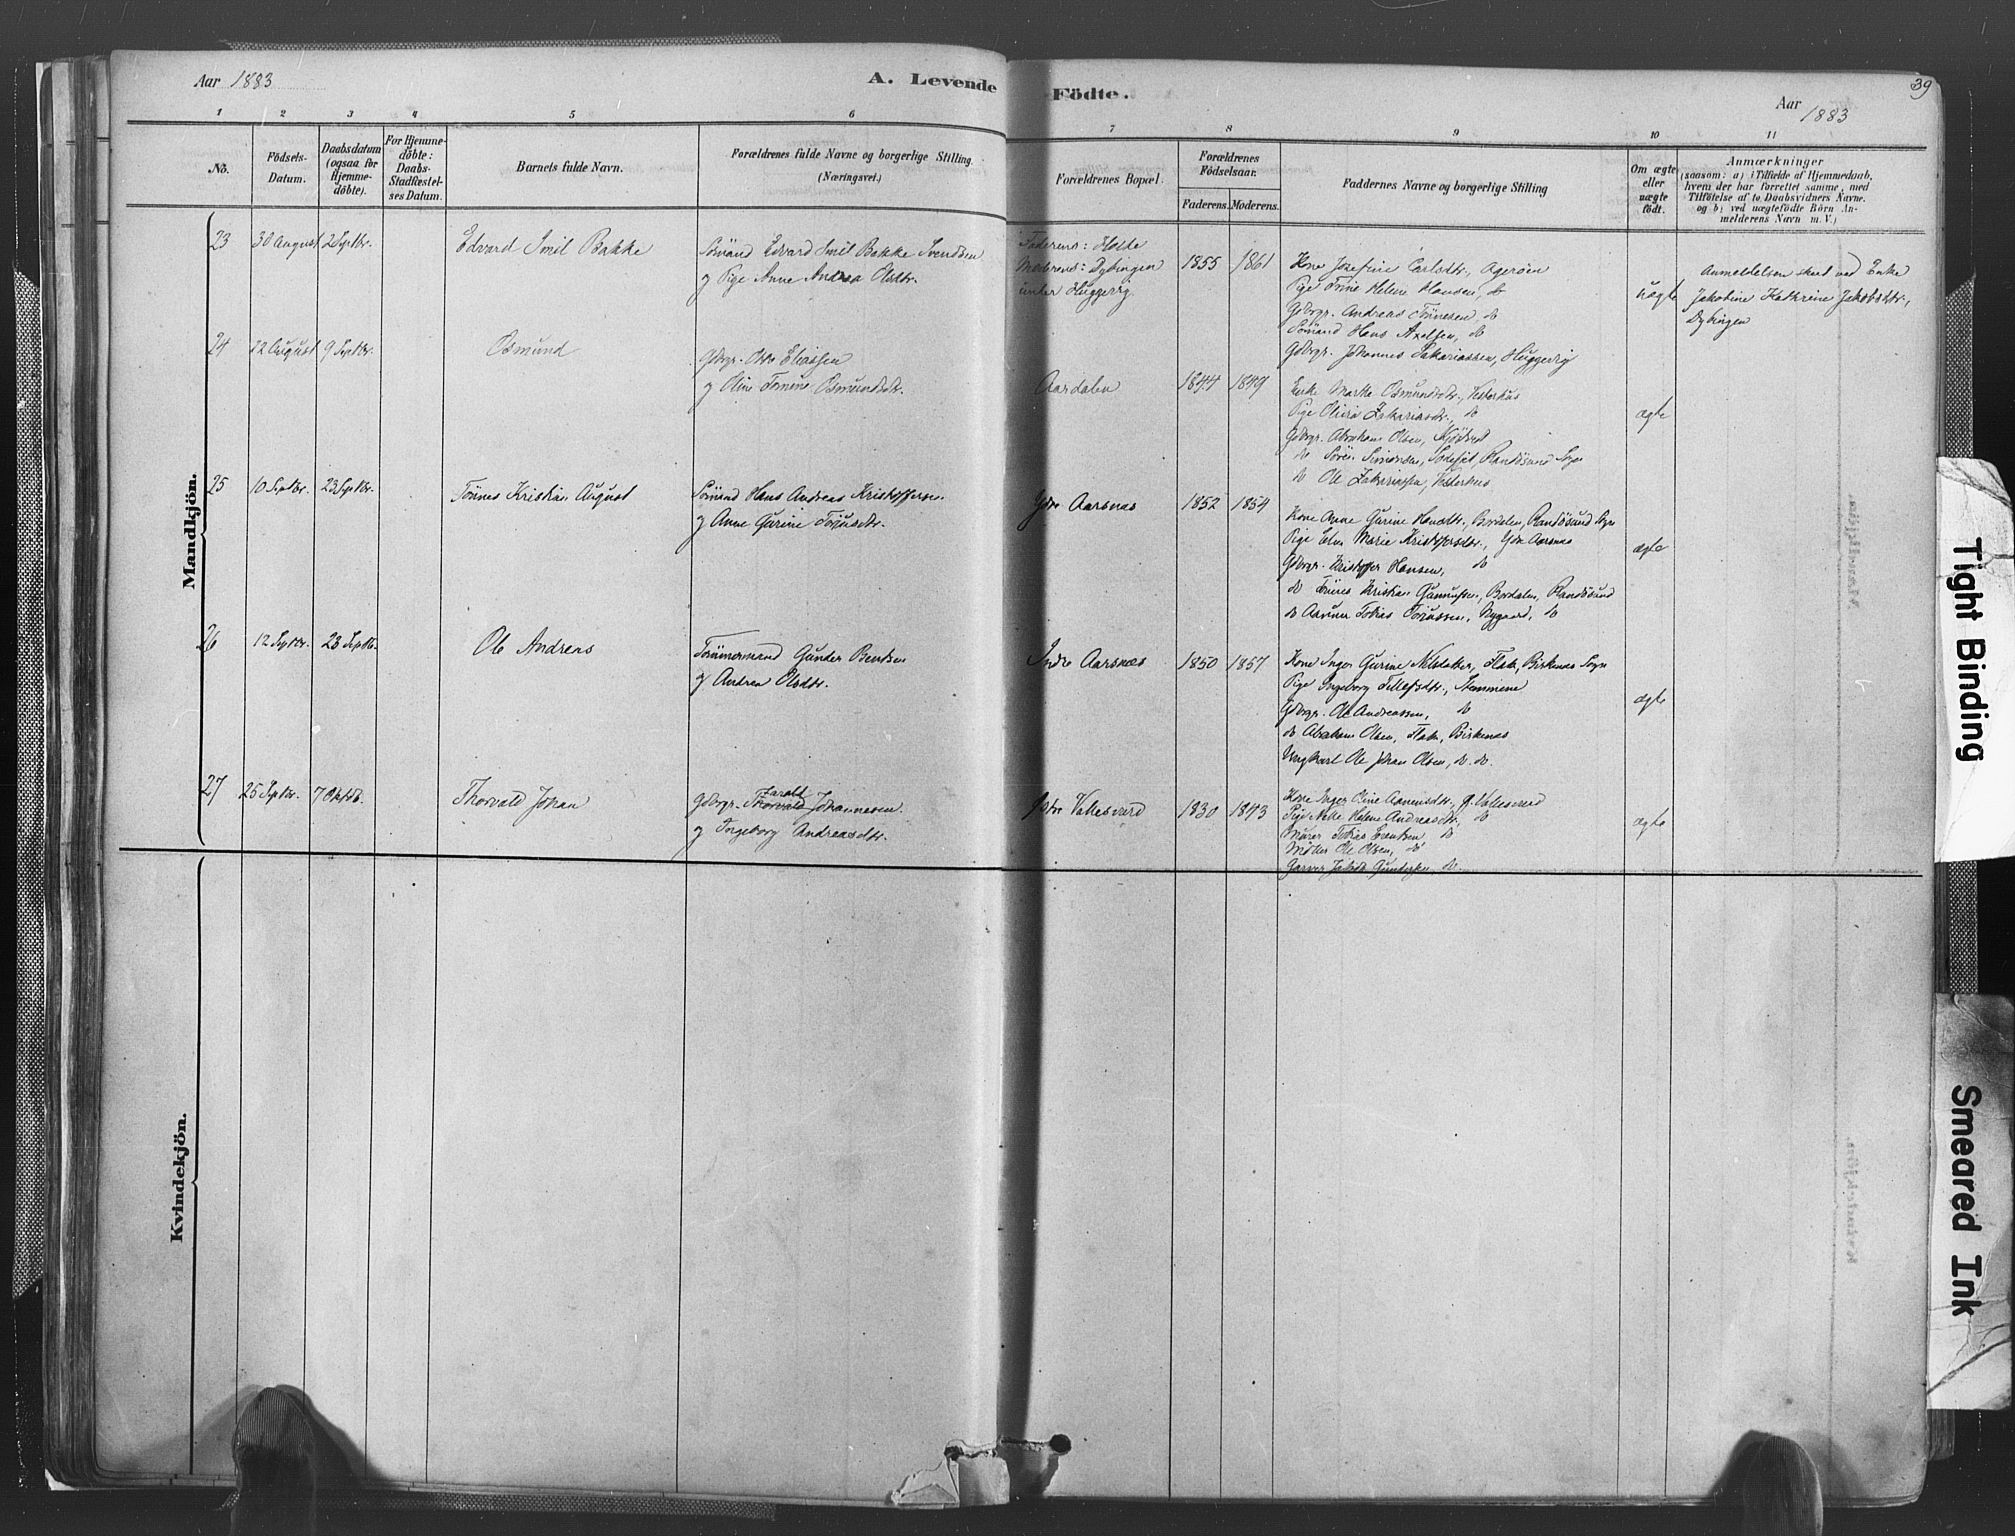 Aar 1883
A. Levende Födte.
39
Aar 1883
1 2 3 4 5 6 7 8 9 10 11
No.
Födsels-
Datum.
Daabsdatum
(ogsaa for
Hjemme-
döbte).
For Hjemme-
döbte:
Daabs-
Stadfæstel-
ses Datum.
Barnets fulde Navn.
Forældrenes fulde Navne og borgerlige Stilling.
(Næringsvei.)
Forældrenes Bopæl.
Forældrenes
Födselsaar.
Faderens. Moderens.
Faddernes Navne og borgerlige Stilling
Om ægte
eller
uægte
födt.
Anmærkninger
(saasom: a) i Tilfælde af Hjemmedaab,
hvem der har forrettet samme, med
Tilföielse af to Daabsvidners Navne.
og b) ved uægtefödte Börn An-
melderens Navn m. V.)
Mandkjön.
23
30 August
2 Septbr.
Edvard Emil Bakke
Sömand Edvard Emil Bakke Svendsen
og Pige Anne Andrea Olsdtr.
Faderens: Holte
Moderens: Dybingen
under Huggerig.
1855
1861
Kone Josefine Carlsdtr., Ageröen
Pige Trine Helene Hansen, do
Gdbrgr. Andreas Tönesen, do
Sömand Hans Axelsen, do
Gdbrgr. Johannes Sakariassen, Huggerig
uægte
Anmeldelsen skeet ved Enke
Jakobine Kathrine Jakobsdtr.,
Dybingen
24
22 August
9 Septbr.
Osmund
Gdbrgr. Eliassen
og Oline Tomine Osmundsdtr.
Aardalen
1844
1849
Enke Marthe Osmundsdtr., Vesterhus
Pige Zakariasdtr., do
Gdbrgr. Abraham Olsen,
do Sören Simonsen, Randösund Sogn
do Ole Zakariassen, Vesterhus
ægte
25
10 Septbr.
23 Septbr.
Tönnes Kristian August
Sömand Hans Andreas Kristoffersen
og Anne Gurine
Ydre Aarsnæs
1852
1854
Kone Anne Gurine Hansdtr., Bordalen, Randösund Sogn
Pige Marie Kristoffersdtr., Ydre Aarsnæs
Gdbrgr. Kristoffer Hansen, do
do Tönnes Kristian Gunnufsen, Bordalen, Randösund
do Tobias Nygaard, do
ægte
26
12 Septbr.
23 Septbr.
Ole Andreas
Tömmermand Gunder Bentsen
og Andrea Olsdtr.
Indre Aarsnæs
1850
1857
Kone Inger Gurine Nilsdatter, Flak, Birkenæs Sogn
Pige Ingeborg Tellefsdtr., Stemmene
Gdbrgr. Ole Andreassen, do
do Abraham Olsen, Flak, Birkenæs
Ungkarl Ole Johan Olsen, do. do.
ægte
27
25 Septbr.
7 Oktob.
Thorvald Johan
Gdbrgr. Thorvald Johannesen
og Ingeborg Andreasdtr.
Vallesværd
1830
1843
Kone Inger Oline Vallesværd
Pige Helene Andreasdtr., do
Murer Tobias Evensen do
Möller Ole Olsen, do
Garver Jakob Gundersen, do
ægte
Kvindekjön.
Tight Binding
Smeared Ink